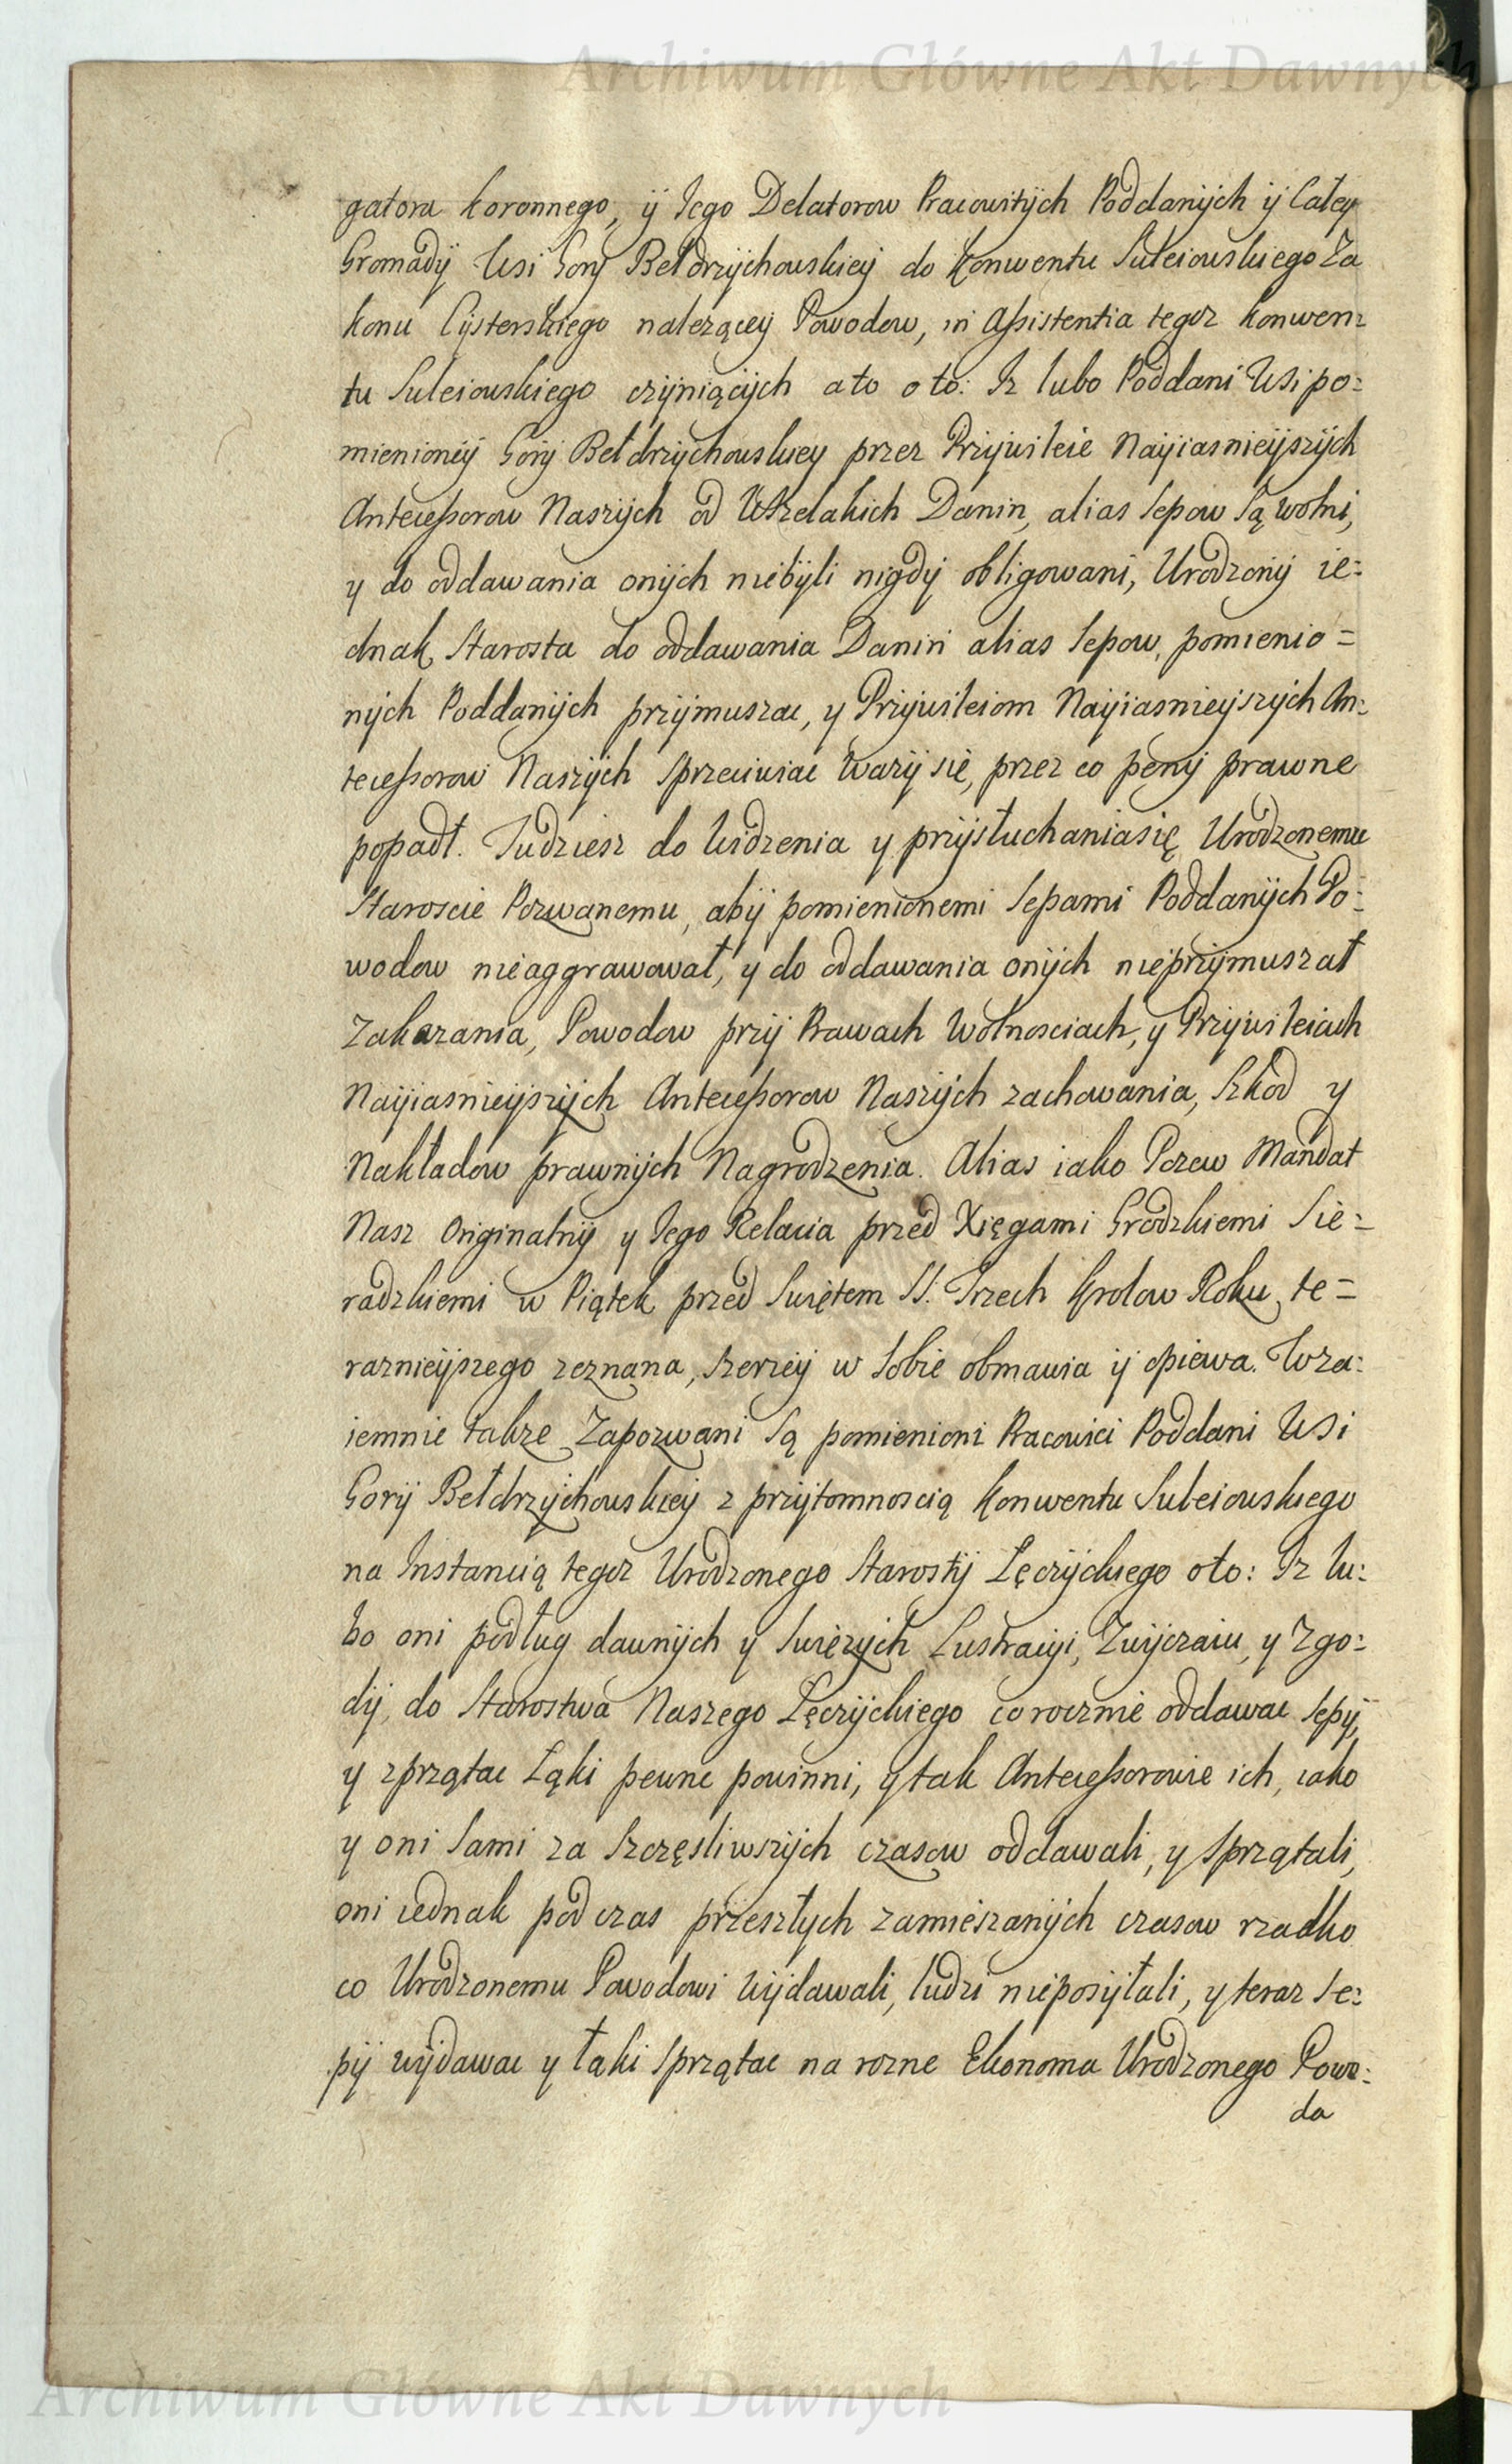 Archiwum Główne Akt Dawnych
gatora koronnego, ÿ Jego Delatorow Pracowitÿch Poddanÿch ÿ Całeÿ
Gromadÿ Wsi Gorÿ Bełdrzÿchowskieÿ do Konwentu Suleiowskiego Za
konu Cÿsterskiego nalezącеÿ Powodow, in Assistentia tegoz Konwen=
tu Suleiowskiego czÿniącÿch a to o to: Iz lubo Poddani Wsi po=
mienioneÿ Gorÿ Bełdrzÿchowskieÿ przez Przÿwileie Naÿiasnieÿszÿch
Antecessorow Naszÿch od Wszelakich Danin, alias Sepow Są wolni,
y do oddawania onÿch niebÿli nigdÿ obligowani, Urodzonÿ ie=
dnak Starosta do oddawania Danin alias Sepow, pomienio=
nÿch Poddanÿch przÿmuszac, y Przÿwileiom Naÿiasnieÿszÿch An=
tecessorow Naszÿch Sprzeciwiac wazÿ się, przez co penÿ prawne
popadł. Tudziesz do Widzenia y przÿsłuchania się Urodzonemu
Staroscie Pozwanemu, abÿ pomienionemi Sepami Poddanÿch Po=
wodow nieaggrawował, y do oddawania onÿch nieprzÿmuszał
Zakazania, Powodow przÿ Prawach Wolnosciach, y Przÿwileiach
Naÿiasnieÿszÿch Antecessorow Naszÿch zachowania, Szkod y
Nakładow prawnÿch Nagrodzenia. Alias iako Pozew Mandat
Nasz Originalnÿ y Jego Relacia przed Xięgami Grodzkiemi Sie=
radzkiemi w Piątek przed Swiętem SS. Trzech Krolow Roku te=
raznieÿszego zeznana, szerzeÿ w Sobie obmawia ÿ opiewa. Wza=
iemnie takze Zapozwani Są pomienioni Pracowici Poddani Wsi
Gorÿ Bełdrzÿchowskieÿ z przÿtomnoscią Konwentu Suleiowskiego
na Instancią tegoz Urodzonego Starostÿ Łęczÿckiego oto: Iz lu=
bo oni podług dawnÿch y Swiezÿch Lustracÿi, Zwÿczaiu, y Zgo=
dÿ, do Starostwa Naszego Łęczÿckiego co rocznie oddawac Sepÿ,
y zprzątac Łąki pewne powinni, y tak Antecessorowie ich, iako
y oni Sami za Szczęsliwszÿch czasow oddawali, y Sprzątali,
oni iednak pod czas przeszłych zamieszanÿch czasow rzadko
co Urodzonemu Powodowi Wÿdawali, ludzi nieposÿłali, y teraz Se=
pÿ wÿdawac y łąki Sprzątac na rozne Ekonoma Urodzonego Powo=
da
Archiwum Główne Akt Dawnych